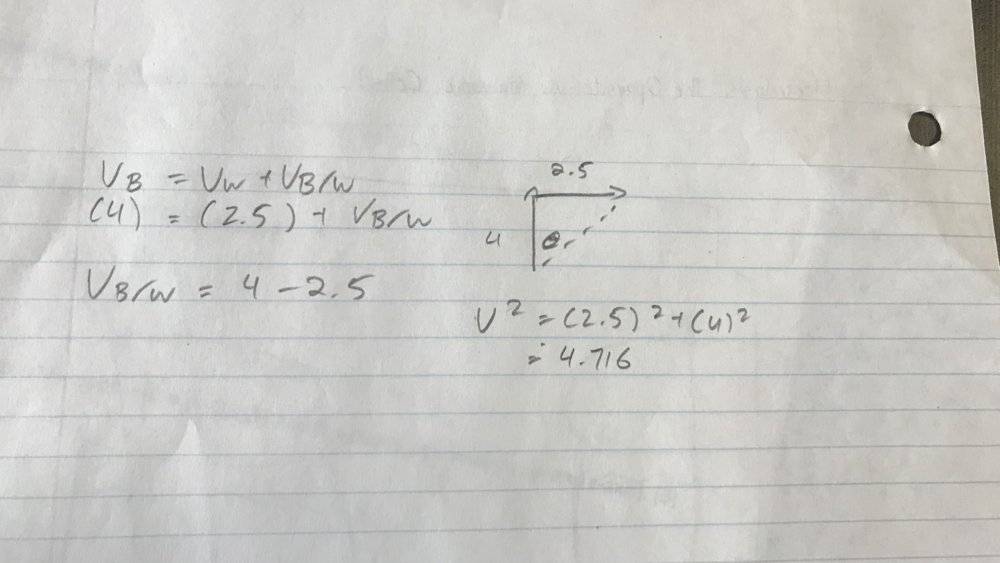 VB = Vw + VB/w
(4) = (2.5) + VB/w
VB/w = 4 - 2.5
2.5
4 θ
V² = (2.5)² + (4)²
= 4.716